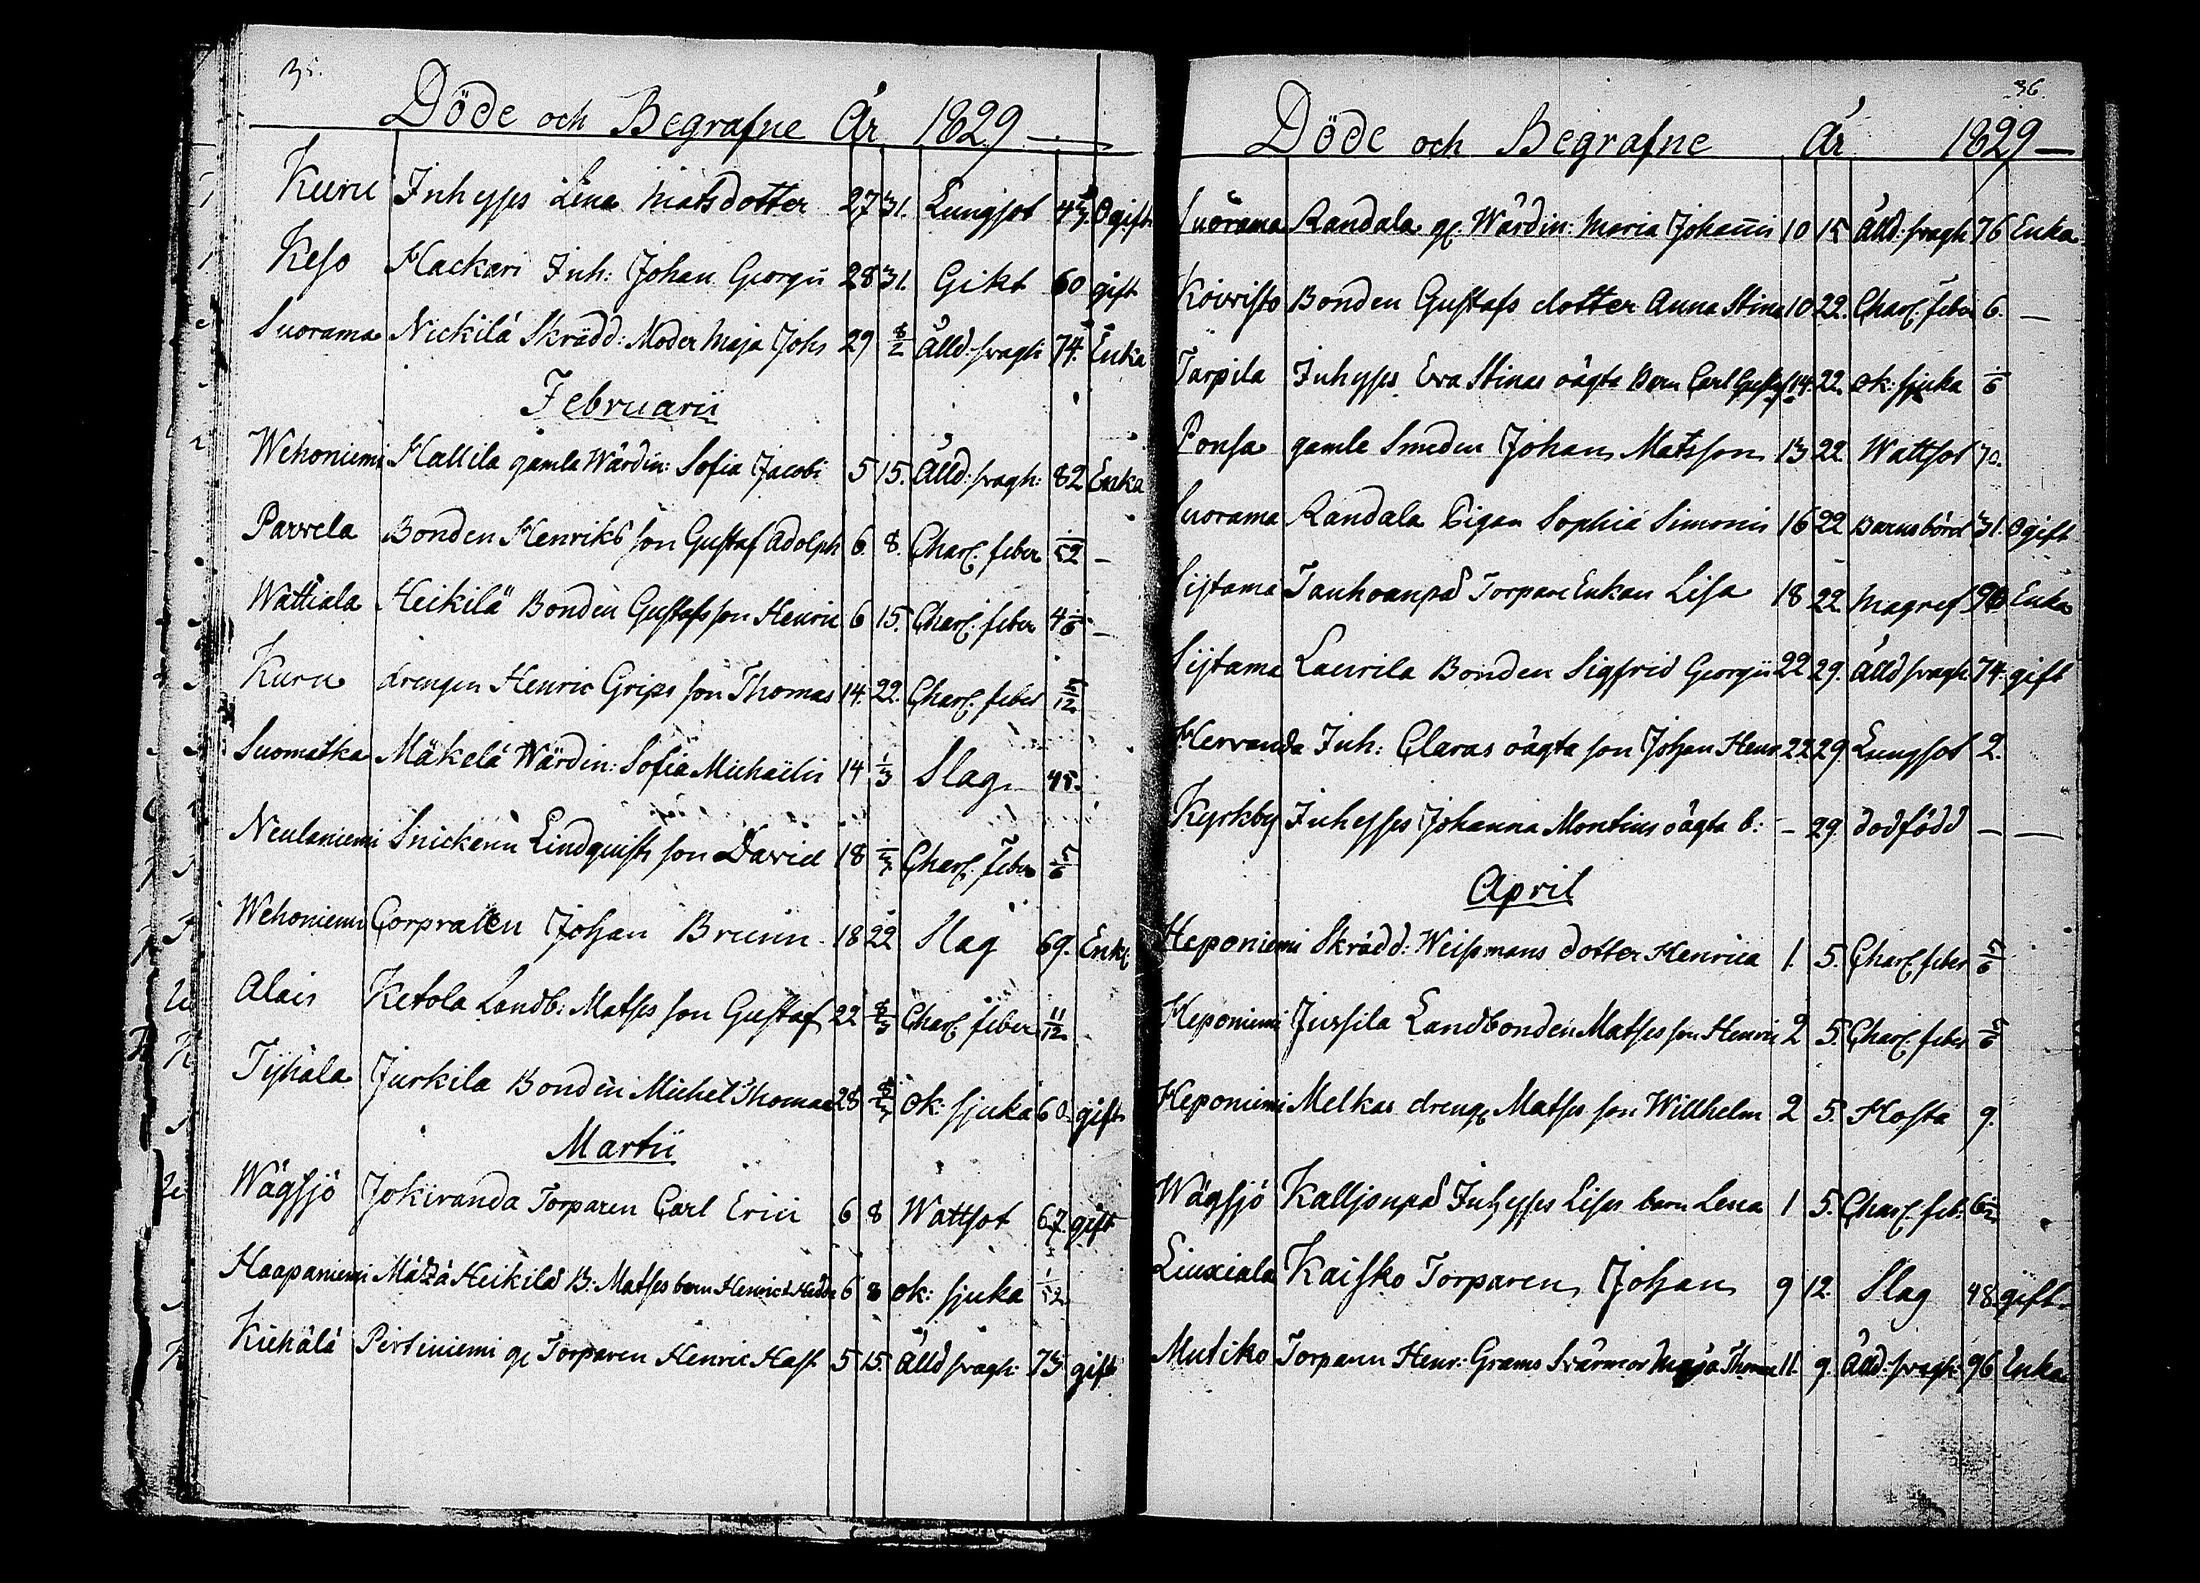 35.
Döde och Begrafne År 1829
Kuru Inhyses Lena Matsdotter 27 31. Lungsot Ogift
Keso Hackari Inh: Johan Georgii 28 31. Gikt 60 gift
Suorama Nickilä Skrädd: Moder Maja Johs 29 8/2 Ålld: svagh 74. Enka
Februarii
Wehoniemi Hallila gamla Wärdin: Sofia Jacobi 5 15. Ålld: svagh: 82 Enka
Parrela Bonden Henriks son Gustaf Adolph 6. 8. Charl. feber 1/52 –
Wättiala Heikilä Bonden Gustafs son Henric 6 15. Charl. feber 4 1/6 –
Kuru drengen Henric Grips son Thomas 14. 22. Charl. feber 5/12
Suomatka Mäkelä Wärdin: Sofia Michaëlis 14 1/3 Slag 45.
Neulaniemi Snickarn Lindquists son David 18 1/3 Charl. feber 5/6
Wehoniemi Corpralen Johan Brunn 18 22 Slag 69. Enkl:
Alais Ketola Landb: Matses son Gustaf 22 8/3 Charl. feber 11/12
Tijhala Jurkila Bonden Michel Thomae 28 8/3 ok: sjuka 60. gift
Martii
Wägsjö Jokiranda Torparen Carl Erici 6 8 Wattsot 67. gift
Haapaniemi Heikilä B: Matses barn Henric 6 8 ok: sjuka 1/52
Kiehälä Pertiniemi gl Torparen Henric Hast 5 15. Ålld svagh: 73 gift
36.
Döde och Begrafne År 1829
Suorama Randala gl. Wärdin: Maria Johannis 10 15 Ålld: svagh 76 Enka
Koivisto Bonden Gustafs dotter Anna Stina 10 22. Charl. feber 6. –
Tarpila Inhyses Eva Stinas oägta Barn Carl Gustaf 14. 22. ok: sjuka 1/6
Ponsa gamle Smeden Johan Matsson 13 22. Wattsot 70.
Suorama Randala Pigan Sophia Simonis 16 22 Barnsbörd 31. Ogift
Sijtama Tanhoanpää Torpare Enkan Lisa 18 22 Magref Enka
Sijtama Laurila Bonden Sigfrid Georgii 22 29. Ålld svagh. 74. gift
Hervanda Inh: Claras oägta son Johan Henr. 22. 29. Lungsot 2.
Kyrkby Inhyses Johanna Montins oägta b: – 29. dödfödd – –
April
Heponiemi Skrädd: Weissmans dotter Henrica 1. 5. Charl. feber 5/6
Heponiemi Jussila Landbonden Matses son Henric 2 5. Charl. feber 5/6
Heponiemi Melkas dreng Matses son Willhelm 2 5. Hosta 9.
Wägsjö Kalljonpää Inhyses Lises barn Lena 1 5. Charl. feb.
Liuxiala Kaisko Torparen Johan 9 12. Slag 48. gift
Mutiko Torparen Henr: Grams Svärmor Maja Thomae 11. 9. Ålld: svagh: 96 Enka